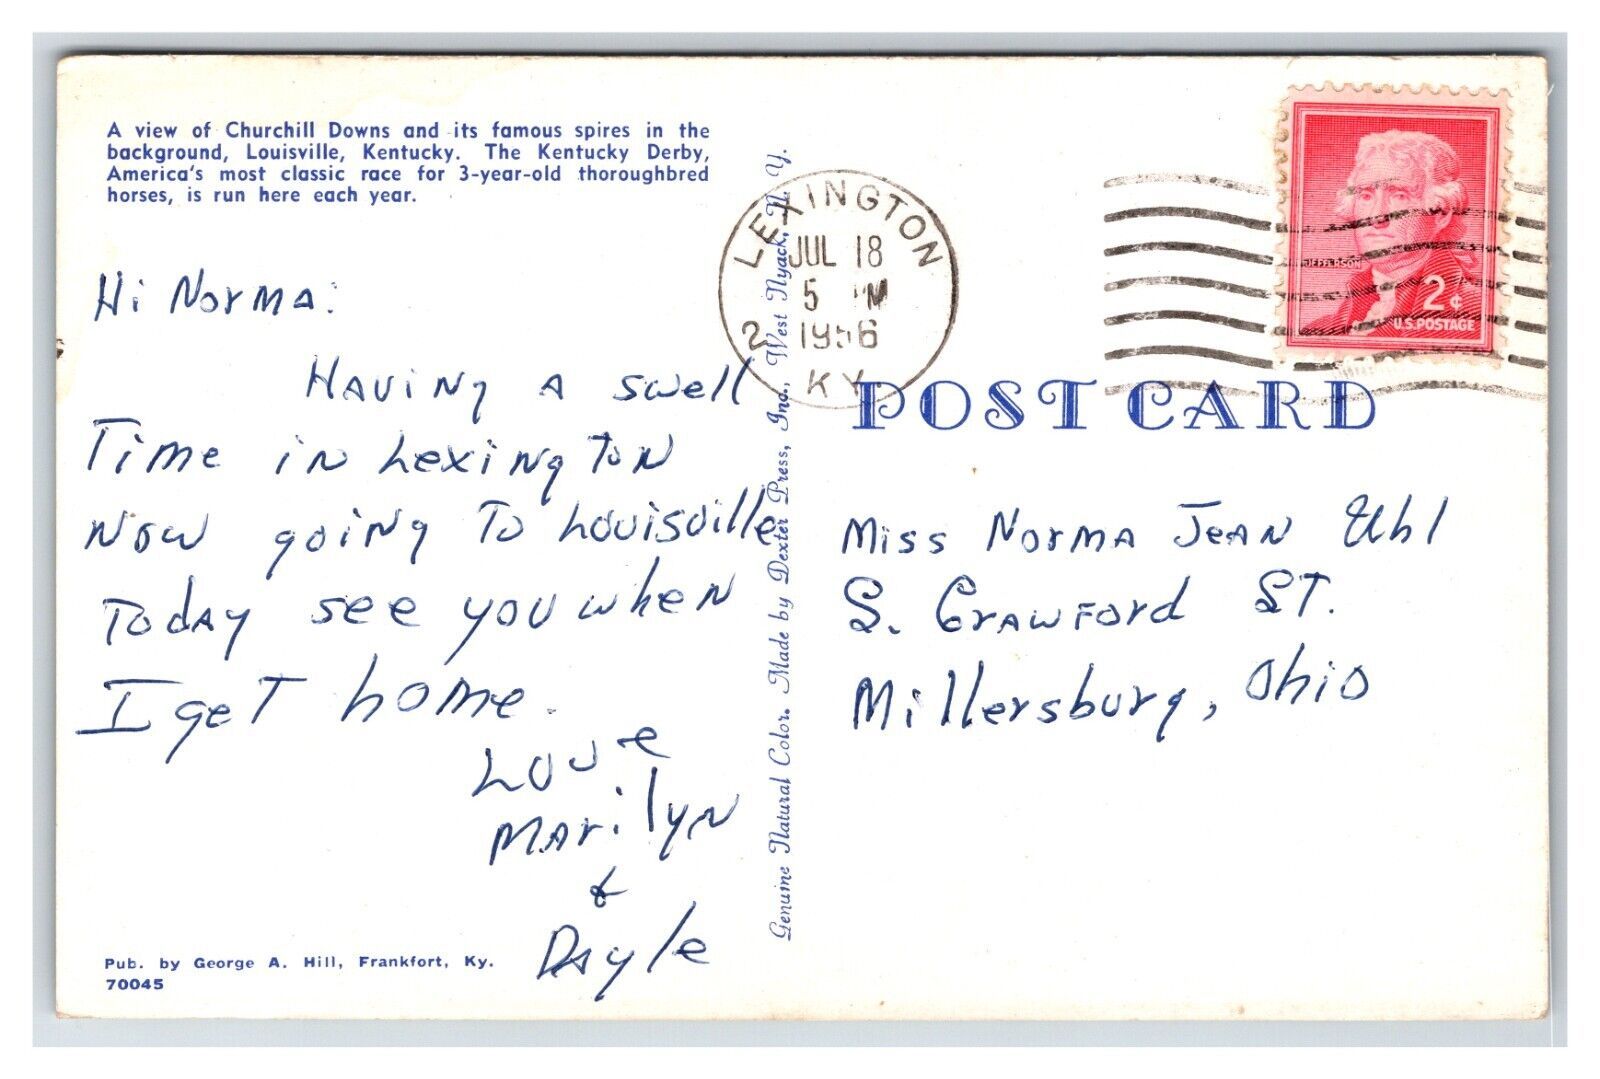 A view of Churchill Downs and its famous spires in the
background, Louisville, Kentucky. The Kentucky Derby,
America's most classic race for 3-year-old thoroughbred
horses, is run here each year.
Hi Norma:
Having a swell
Time in Lexington
Now going To Louisville
Today see you when
I get home.
Love
Marilyn
&
Dayle
Pub. by George A. Hill, Frankfort, Ky.
70045
Genuine Natural Color. Made by Dexter Press, Inc., West Nyack, N. Y.
LEXINGTON
JUL 18
5 PM
2 1956
KY
JEFFERSON
2¢
U.S. POSTAGE
POST CARD
Miss Norma Jean Uhl
S. Crawford ST.
Millersburg, Ohio